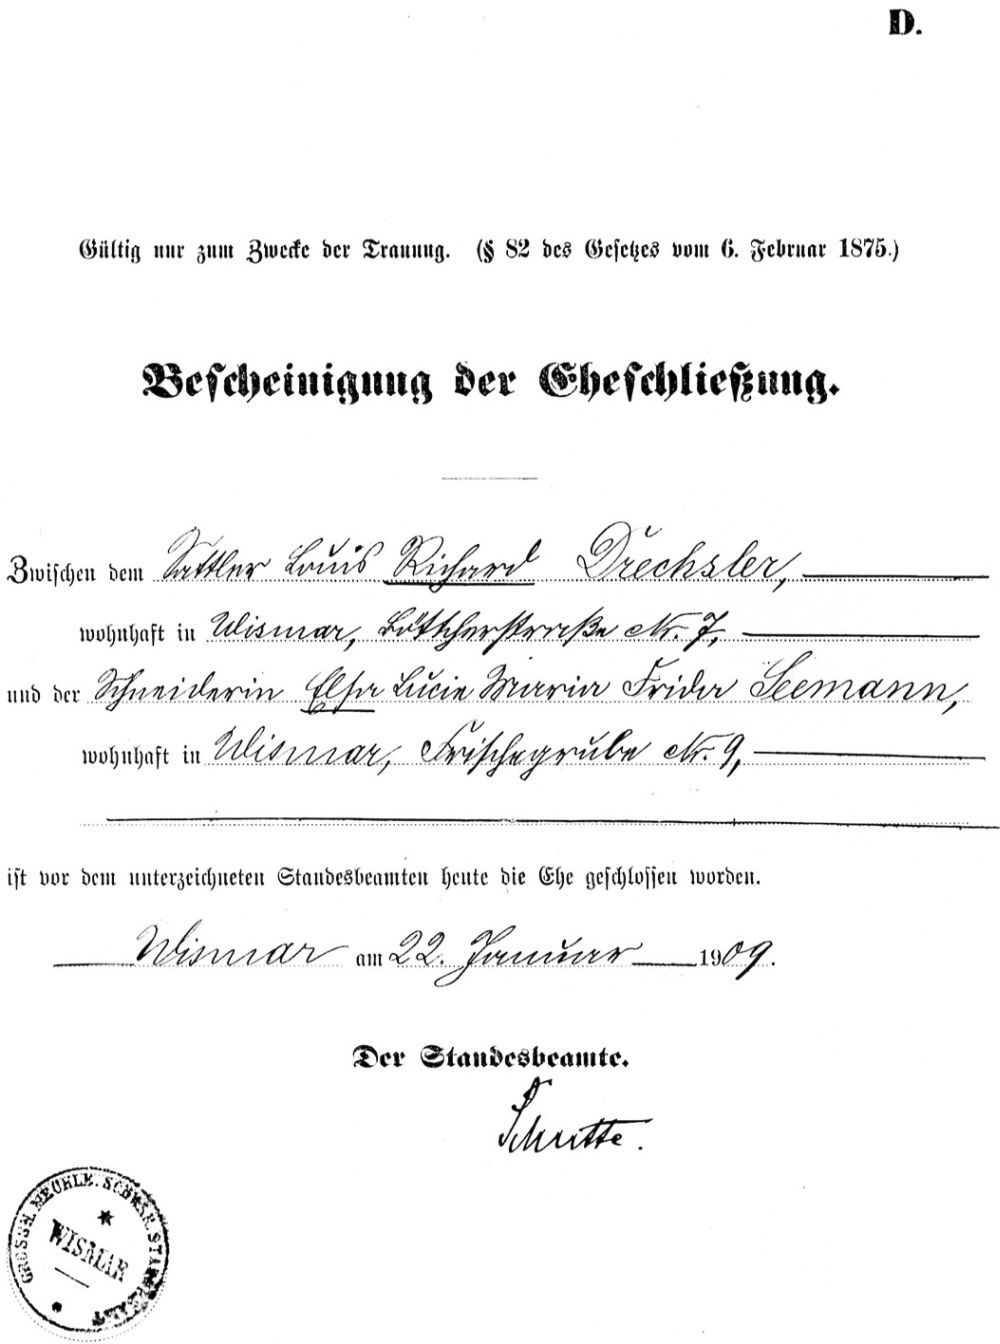 D.
Gültig nur zum Zwecke der Trauung. (§ 82 des Gesetzes vom 6. Februar 1875.)
Bescheinigung der Eheschließung.
Zwischen dem Sattler Louis Richard Drechsler,
wohnhaft in Wismar, Böttcherstraße Nr. 7,
und der Schneiderin Elsa Lucie Maria Frida Seemann,
wohnhaft in Wismar, Frischegrube Nr. 9,
ist vor dem unterzeichneten Standesbeamten heute die Ehe geschlossen worden.
Wismar am 22. Januar 1909.
Der Standesbeamte.
GROSSH. MECKLB. SCHWER. STANDESAMT
WISMAR